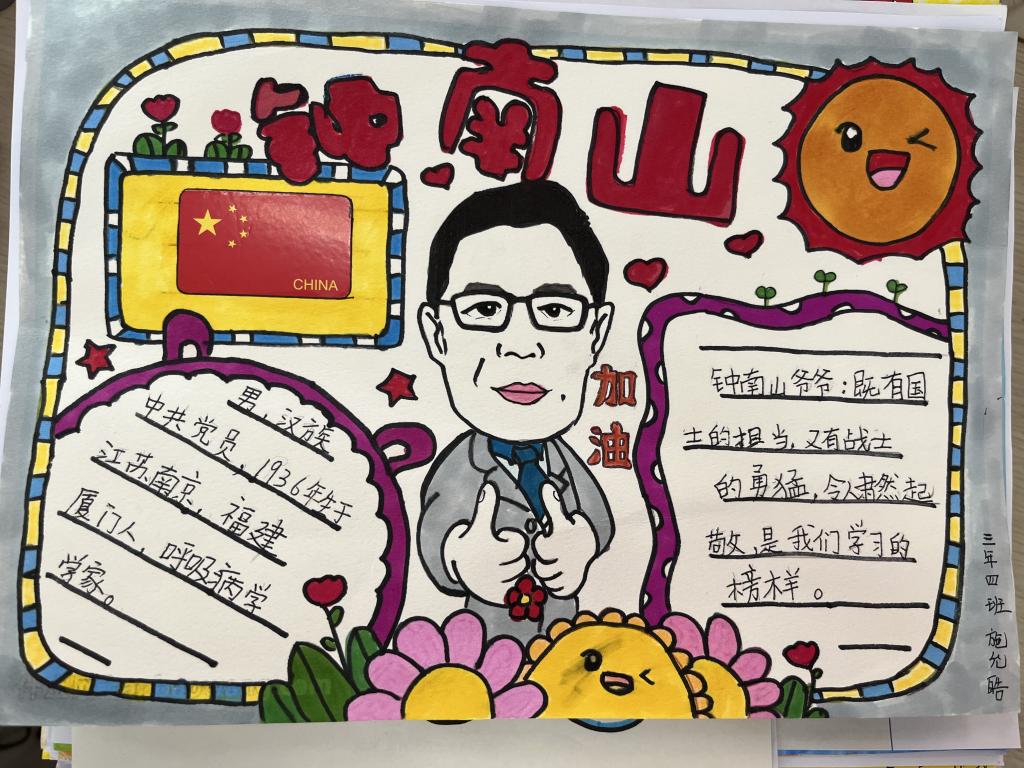 钟南山
CHINA
加
油
男，汉族
中共党员，1936年生于
江苏南京，福建
厦门人，呼吸病学
学家。
钟南山爷爷：既有国
士的担当，又有战士
的勇猛，令人肃然起
敬，是我们学习的
榜样。
三年四班 施允皓